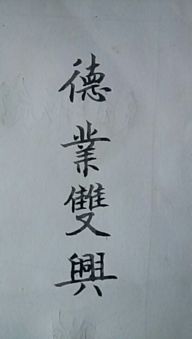 德業雙興